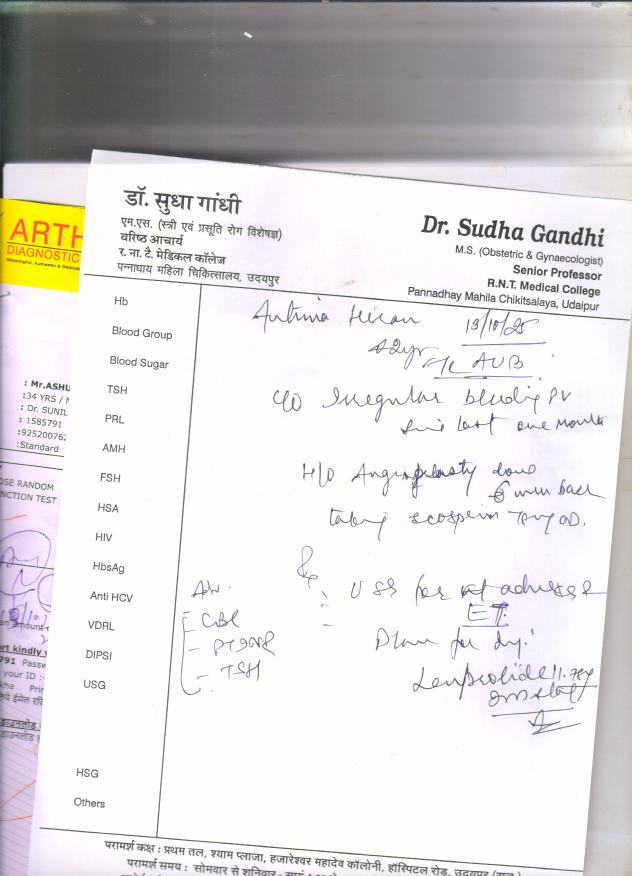 डॉ. सुधा गांधी
एम.एस. (स्त्री एवं प्रसूति रोग विशेषज्ञ)
वरिष्ठ आचार्य
र. ना. टै. मेडिकल कॉलेज
पन्नाधाय महिला चिकित्सालय, उदयपुर
Dr. Sudha Gandhi
M.S. (Obstetric & Gynaecologist)
Senior Professor
R.N.T. Medical College
Pannadhay Mahila Chikitsalaya, Udaipur
Hb
Blood Group
Blood Sugar
TSH
PRL
AMH
FSH
HSA
HIV
HbsAg
Anti HCV
VDRL
DIPSI
USG
HSG
Others
13/10/25
42yr
AUB
c/o Irregular bleeding PV
since last one month
H/O Angioplasty done
back
taking ecosprin 75mg OD.
USG for
ET
Adv.
CBC
PT INR
TSH
Plan for Inj.
Leuprolide 11.
परामर्श कक्ष : प्रथम तल, श्याम प्लाजा, हजारेश्वर महादेव कॉलोनी, हॉस्पिटल रोड, उदयपुर (राज.)
परामर्श समय : सोमवार से शनिवार
ARTH
DIAGNOSTIC
: Mr.ASHU
:34 YRS / M
: Dr. SUNIL
: 1585791
:925200762
:Standard
OSE RANDOM
NCTION TEST
ort kindly
791 Passw
your ID :-